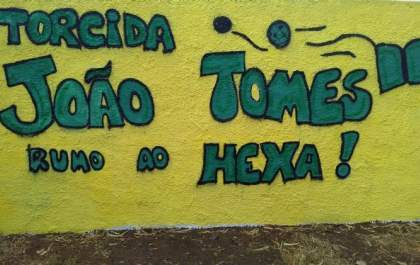 TORCIDA
JOÃO TOMES
RUMO AO HEXA!